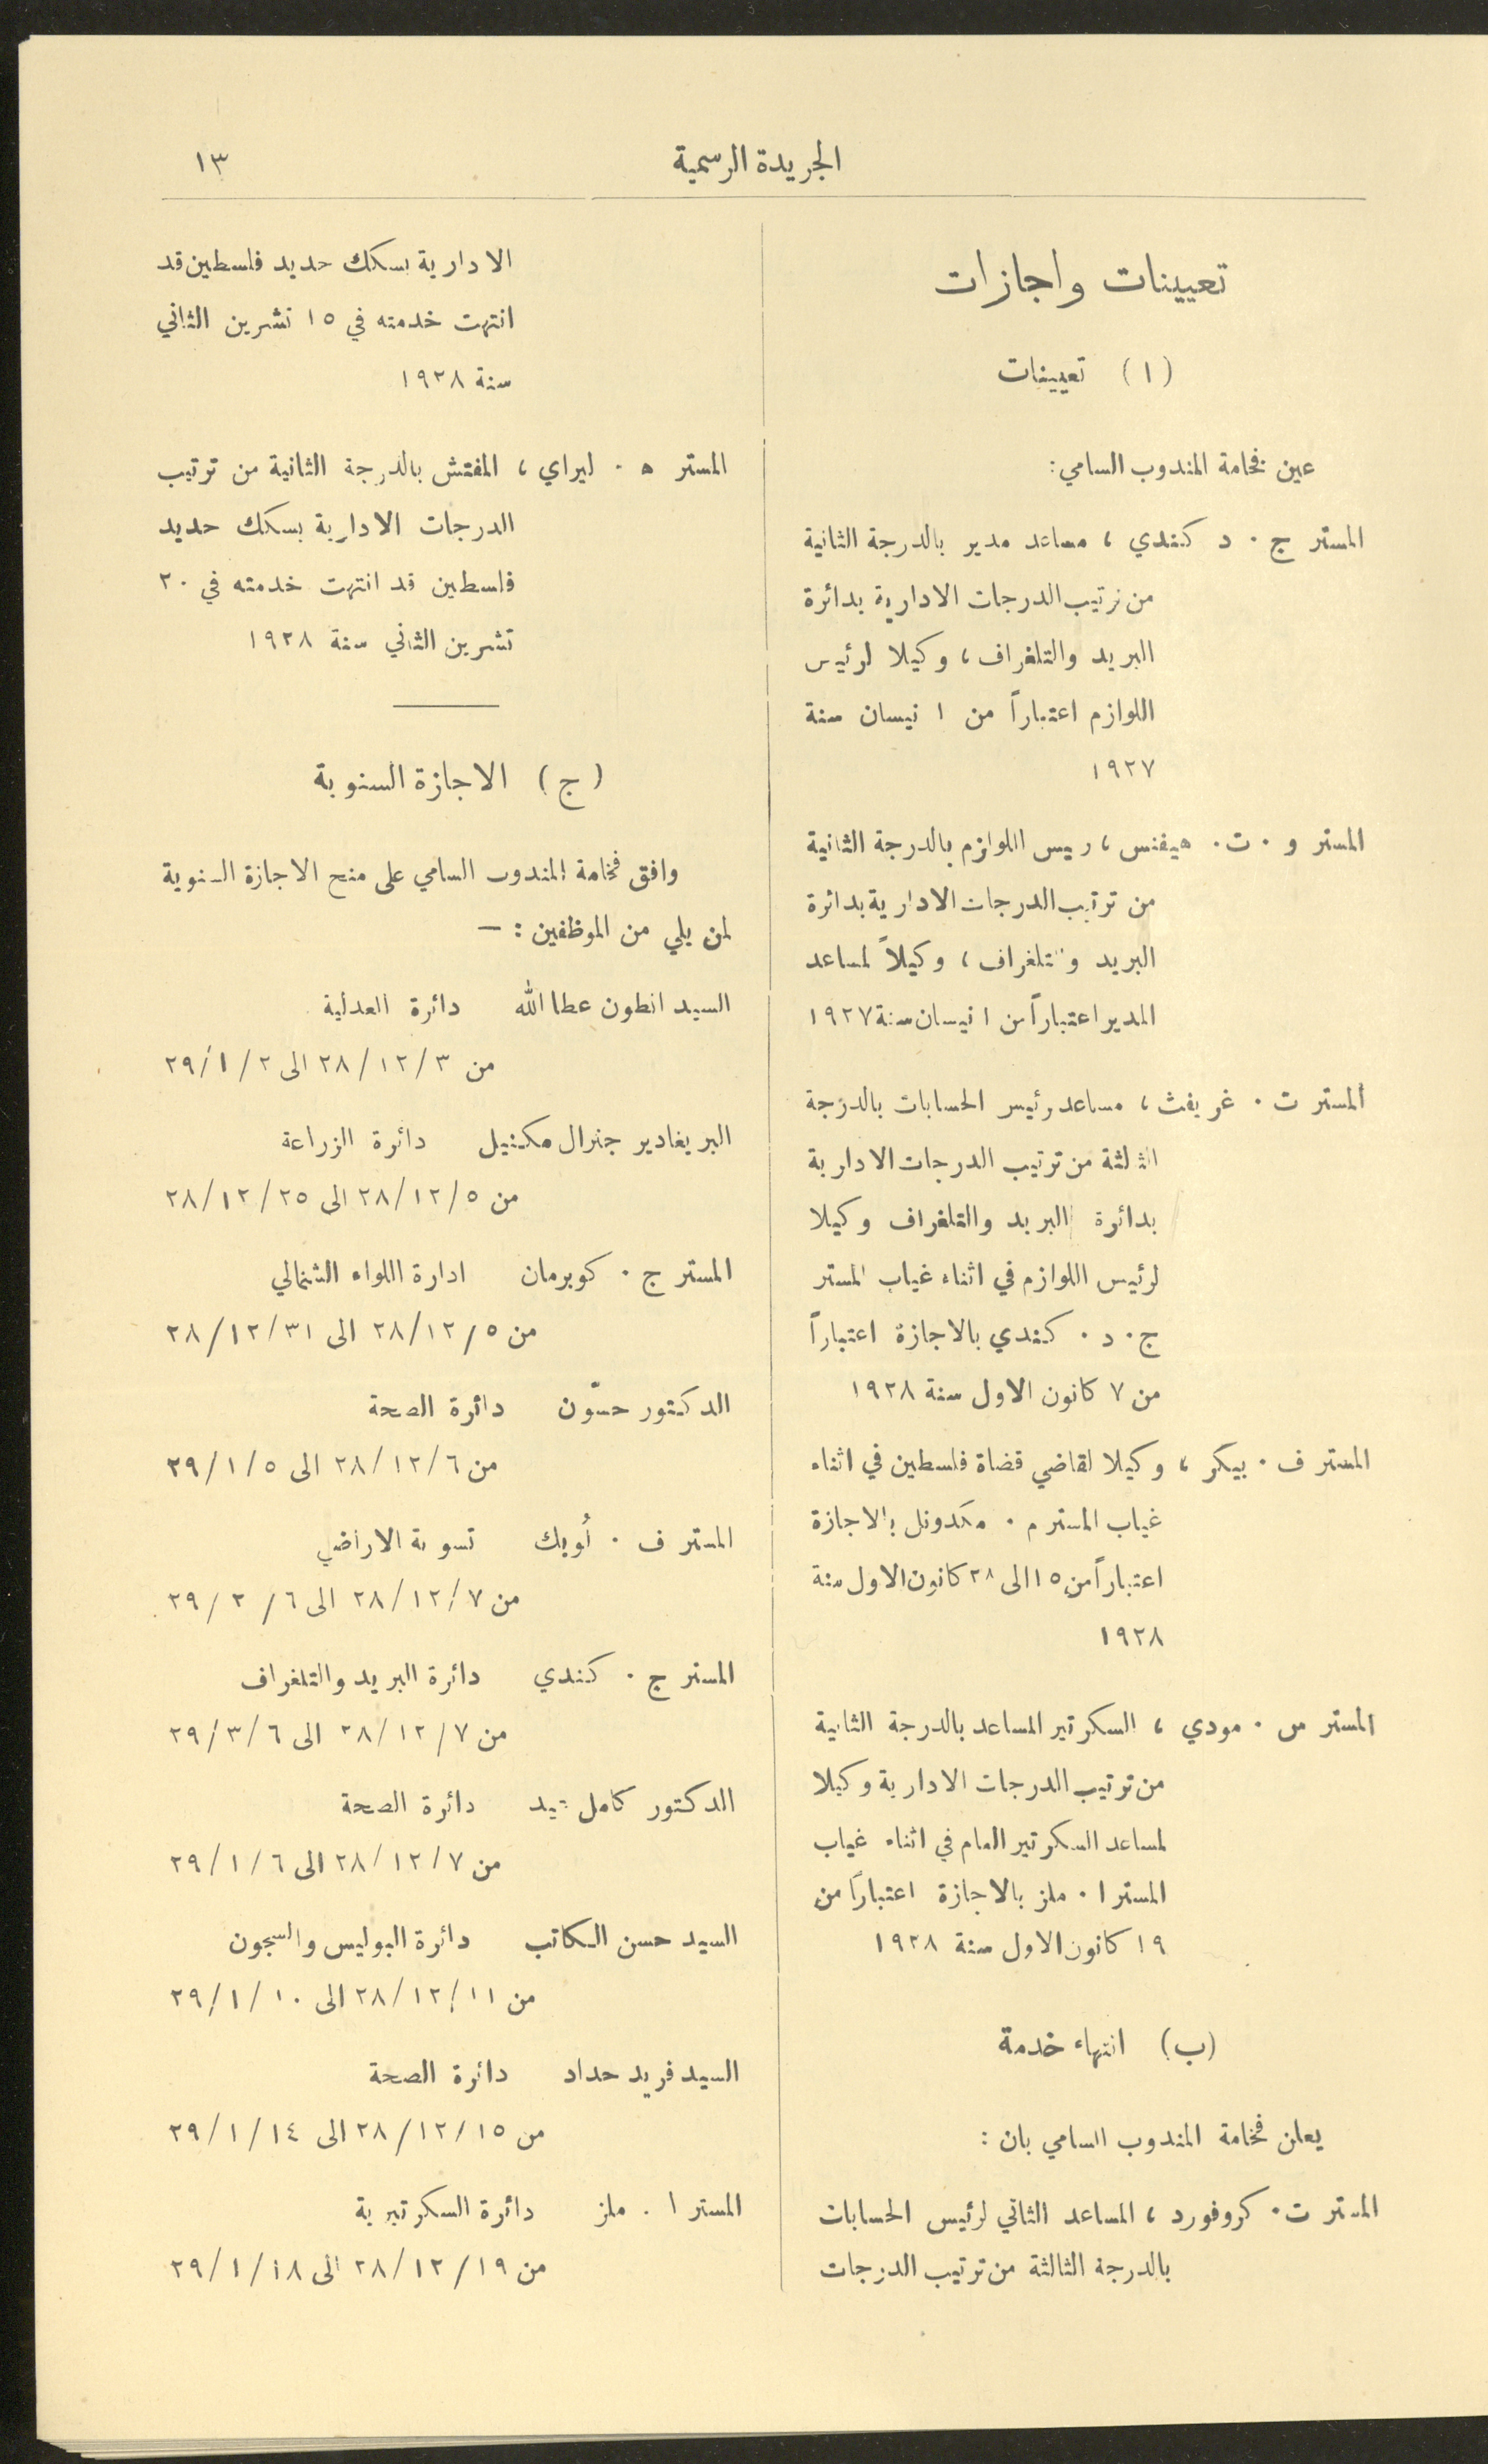 الجريدة الرسمية
١٣
تعيينات واجازات
(ا) تعيينات
عين فخامة المندوب السامي:
المستر ج . د كندي ، مساعد مدير بالدرجة الثانية
من ترتيب الدرجات الادارية بدائرة
البريد والتلغراف ، وكيلا لرئيس
اللوازم اعتباراً من ١ نيسان سنة
١٩٢٧
المستر و . ت . هيفنس ، رييس اللوازم بالدرجة الثانية
من ترتيب الدرجات الادارية بدائرة
البريد والتلغراف ، وكيلاً لمساعد
المدير اعتباراً من ١ نيسان سنة ١٩٢٧
المستر ت . غريفث ، مساعد رئيس الحسابات بالدرجة
الثالثة من ترتيب الدرجات الادارية
بدائرة البريد والتلغراف وكيلا
لرئيس اللوازم في اثناء غياب المستر
ج . د . كندي بالاجازة اعتباراً
من ٧ كانون الاول سنة ١٩٢٨
المستر ف . بيكر ، وكيلا لقاضي قضاة فلسطين في اثناء
غياب المستر م . مكدونل بالاجازة
اعتباراً من ١٥ الى ٢٨ كانون الاول سنة
١٩٢٨
المستر س . مودي ، السكرتير المساعد بالدرجة الثانية
من ترتيب الدرجات الادارية وكيلا
لمساعد السكرتير العام في اثناء غياب
المستر ا . ملز بالاجازة اعتباراً من
١٩ كانون الاول سنة ١٩٢٨
(ب) انتهاء خدمة
يعلن فخامة المندوب السامي بان :
المستر ت . كروفورد ، المساعد الثاني لرئيس الحسابات
بالدرجة الثالثة من ترتيب الدرجات
الادارية بسكك حديد فلسطين قد
انتهت خدمته في ١٥ تشرين الثاني
سنة ١٩٢٨
المستر ه . ليراي ، المفتش بالدرجة الثانية من ترتيب
الدرجات الادارية بسكك حديد
فلسطين قد انتهت خدمته في ٢٠
تشرين الثاني سنة ١٩٢٨
(ج) الاجازة السنوية
وافق فخامة المندوب السامي على منح الاجازة السنوية
لمن يلي من الموظفين : —
السيد انطون عطا الله دائرة العدلية
من ٢٨/١٢/٣ الى ٢٩/١/٢
البريغادير جنرال مكنيل دائرة الزراعة
من ٢٨/١٢/٥ الى ٢٨/١٢/٢٥
المستر ج . كوبرمان ادارة اللواء الشمالي
من ٢٨/١٢/٥ الى ٢٨/١٢/٣١
الدكتور حسّون دائرة الصحة
من ٢٨/١٢/٦ الى ٢٩/١/٥
المستر ف . أوبك تسوية الاراضي
من ٢٨/١٢/٧ الى ٢٩/٢/٦
المستر ج . كندي دائرة البريد والتلغراف
من ٢٨/١٢/٧ الى ٢٩/٣/٦
الدكتور كامل دائرة الصحة
من ٢٨/١٢/٧ الى ٢٩/١/٦
السيد حسن الكاتب دائرة البوليس والسجون
من ٢٨/١٢/١١ الى ٢٩/١/١٠
السيد فريد حداد دائرة الصحة
من ٢٨/١٢/١٥ الى ٢٩/١/١٤
المستر ا . ملز دائرة السكرتيرية
من ٢٨/١٢/١٩ الى ٢٩/١/١٨